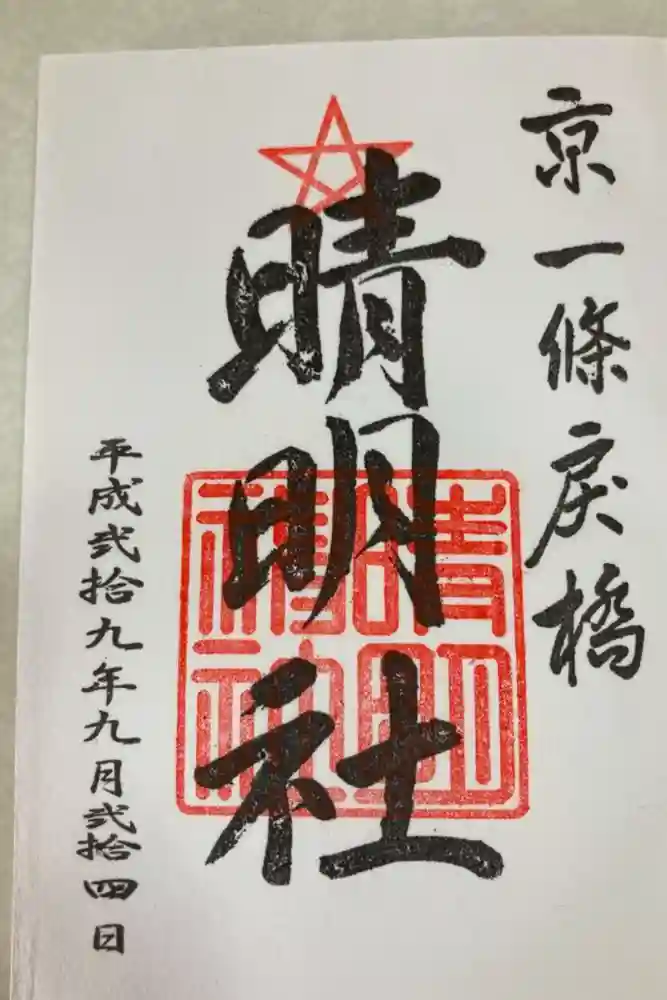 京一條戻橋
晴明社
平成弐拾九年九月弐拾四日